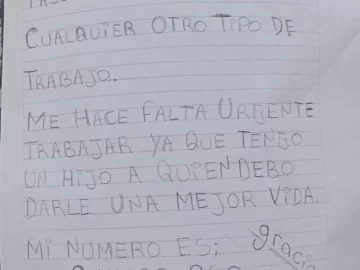 CUALQUIER OTRO TIPO DE
TRABAJO.
ME HACE FALTA URGENTE
TRABAJAR YA QUE TENGO
UN HIJO A QUIEN DEBO
DARLE UNA MEJOR VIDA
MI NUMERO ES;